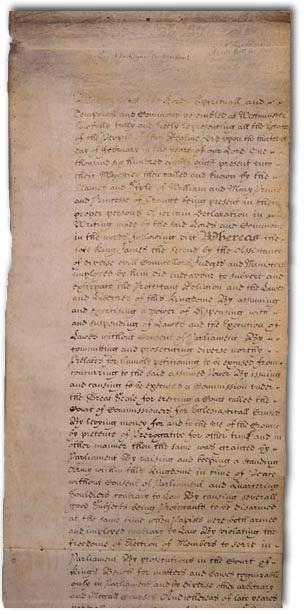 Lords Spirituall and
Temporall and Comons assembled at Westminster
Lawfully fully and freely representing all the Estates
of the People of this Realme did upon the thirteenth
day of February in the yeare of our Lord One
thousand six hundred eighty eight present unto
their Majesties then called and knowne by the
Names and Style of William and Mary Prince
and Princesse of Orange being present in their
proper persons A certaine Declaration in
Writeing made by the said Lords and Comons
in the words following viz Whereas the
late King James the Second by the Assistance
of diverse evill Councellors Judges and Ministers
imployed by him did endeavour to subvert and
extirpate the Protestant Religion and the Lawes
and Liberties of this Kingdome By assuming
and exerciseing a power of Dispensing with
and Suspending of Lawes and the Execution of
Lawes without Consent of Parliament By
committing and prosecuting diverse worthy
Prelates for humbly petitioning to be excused from
concurring to the said assumed Power By issuing
and causing to be executed a Commission under
the Great Seale for erecting a Court called the
Court of Commissioners for Ecclesiasticall Causes
By levying money for and to the use of the Crowne
by pretence of Prerogative for other time and in
other manner then the same was granted by
Parliament By raising and keeping a standing
Army within this Kingdome in time of Peace
without Consent of Parliament and Quartering
Souldiers contrary to Law By causing severall
good Subjects being Protestants to be disarmed
at the same time when Papists were both armed
and imployed contrary to Law By violating the
freedome of Election of Members to serve in
Parliament By prosecutions in the Court of
Kings Bench for matters and causes cognizable
only in Parliament and by diverse other arbitrary
and illegal courses And whereas of late yeares